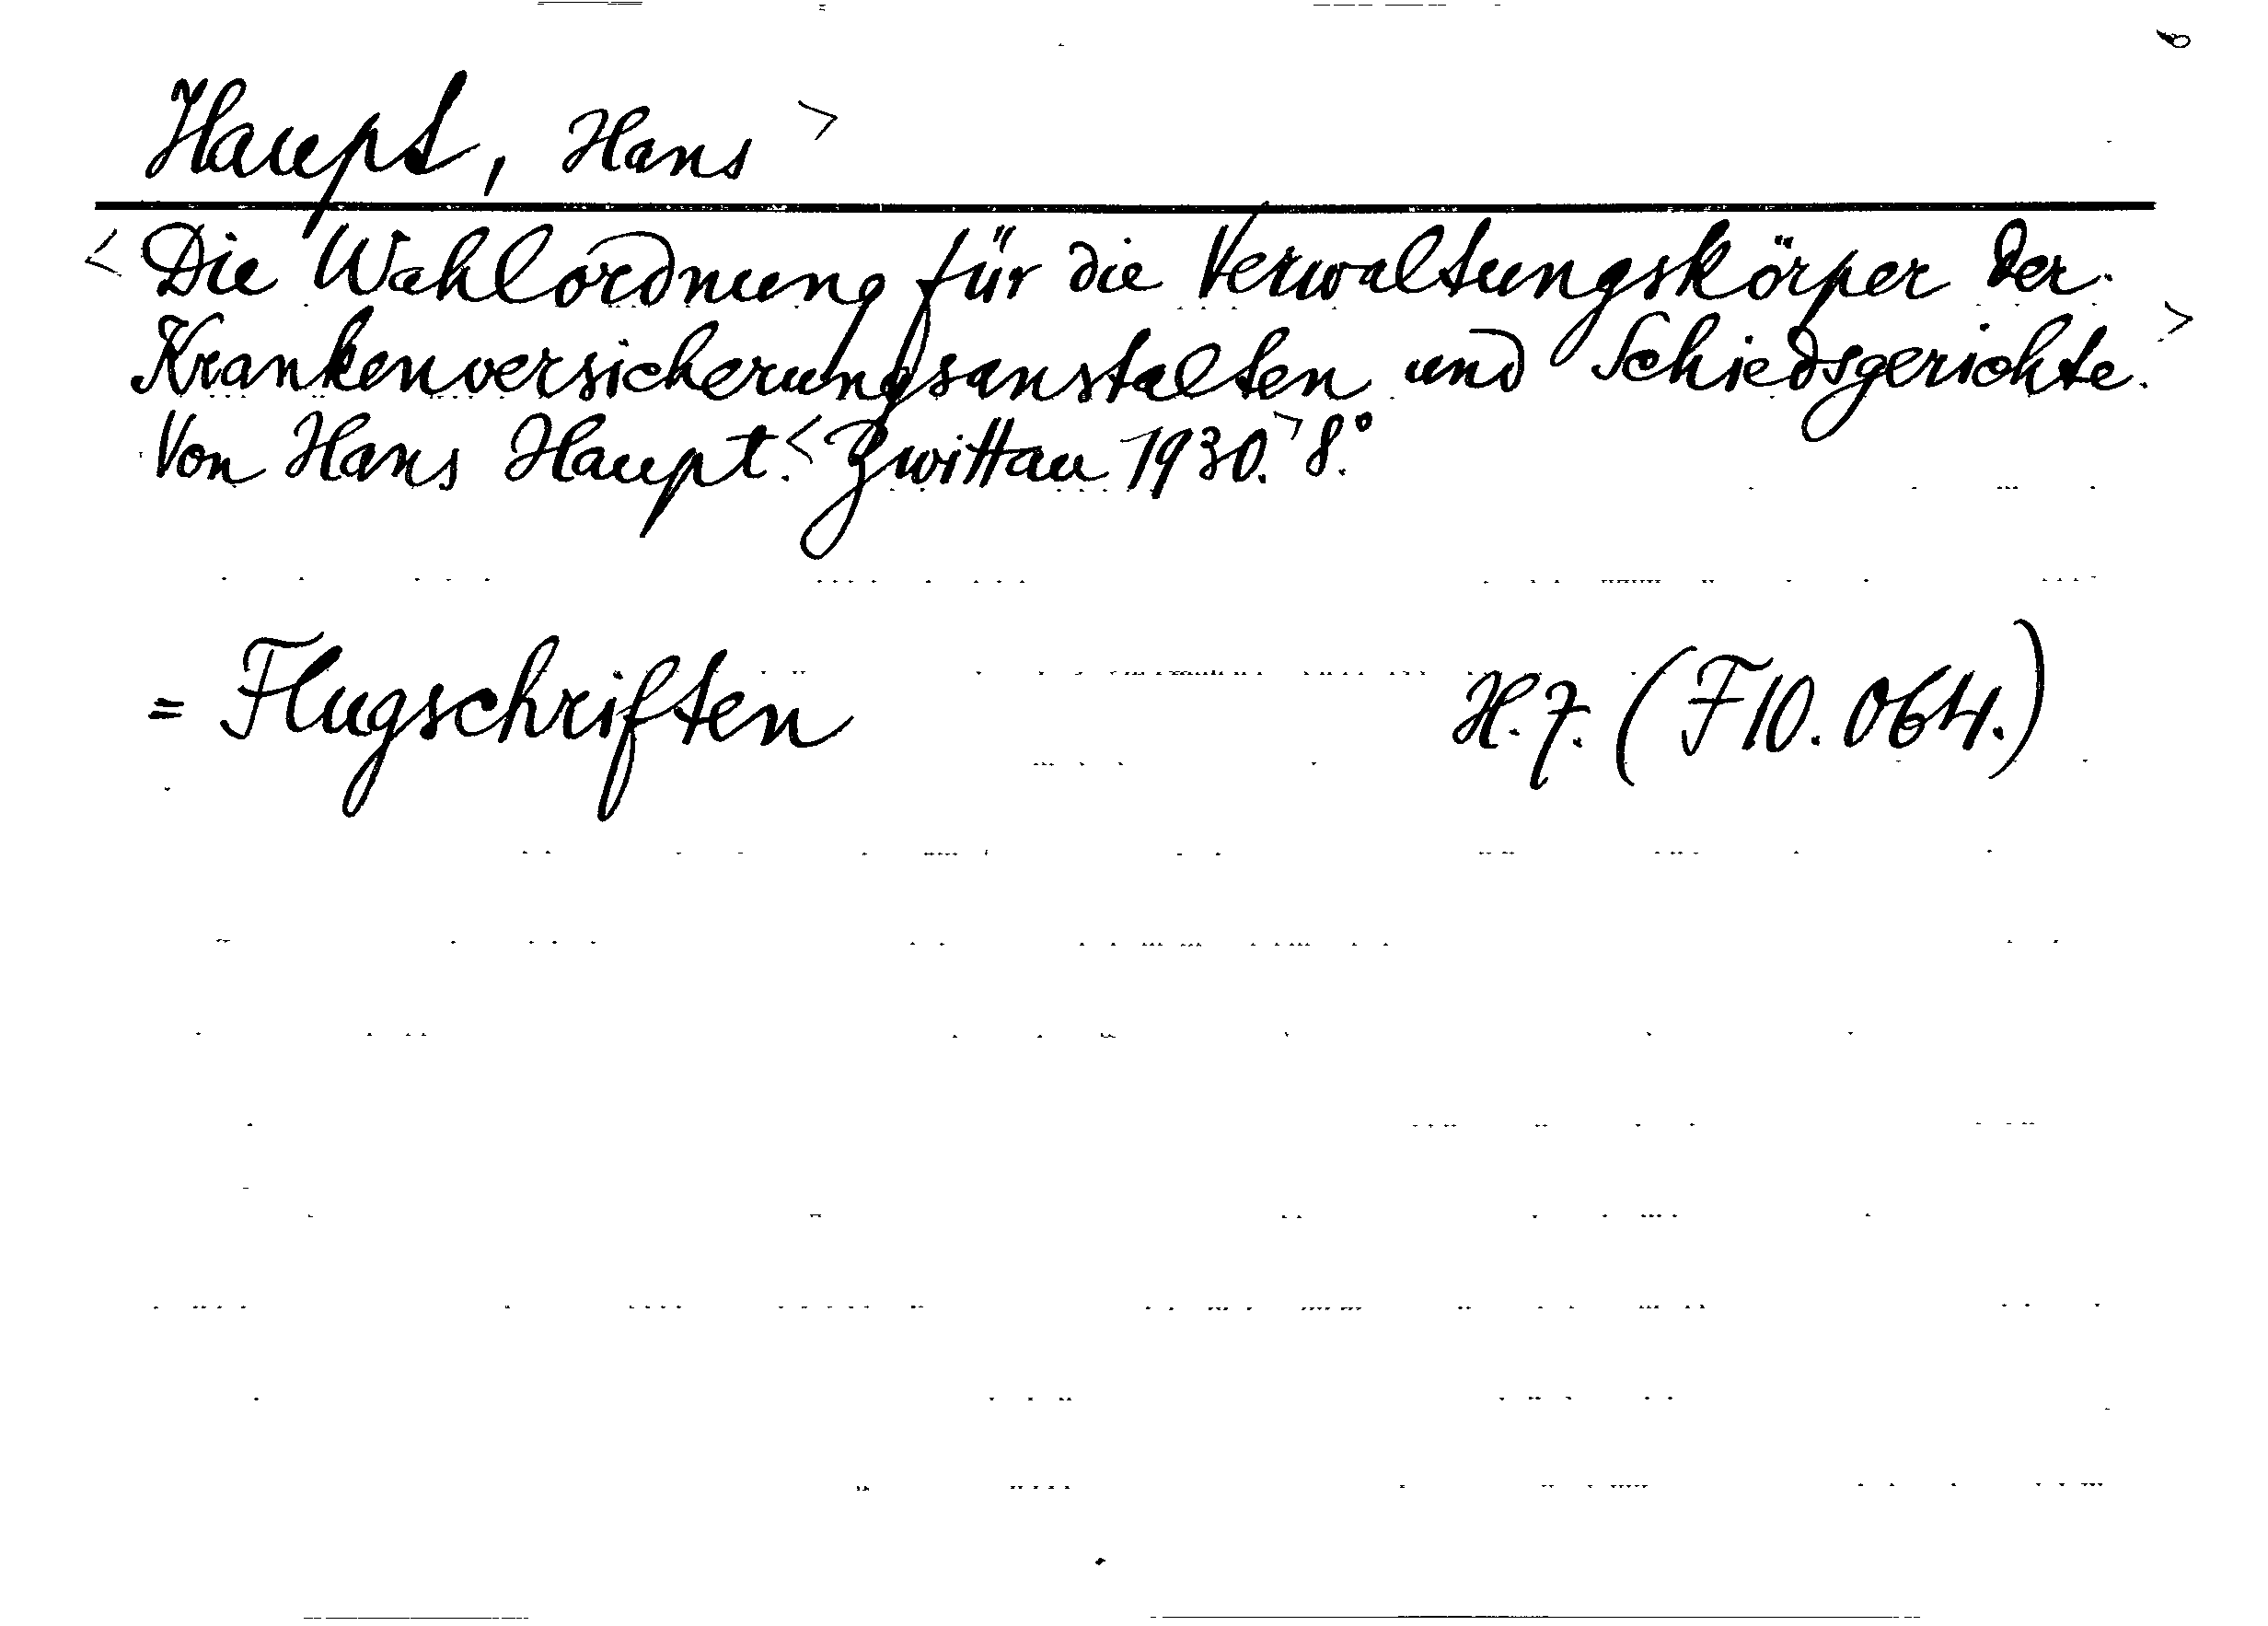 Haupt, Hans >
< Die Wahlordnung für die Verwaltungskörper der
Krankenversicherungsanstalten und Schiedsgerichte. >
Von Hans Haupt. < Zwittau 1930. > 8.°
= Flugschriften H. 7. (F 10. 064.)